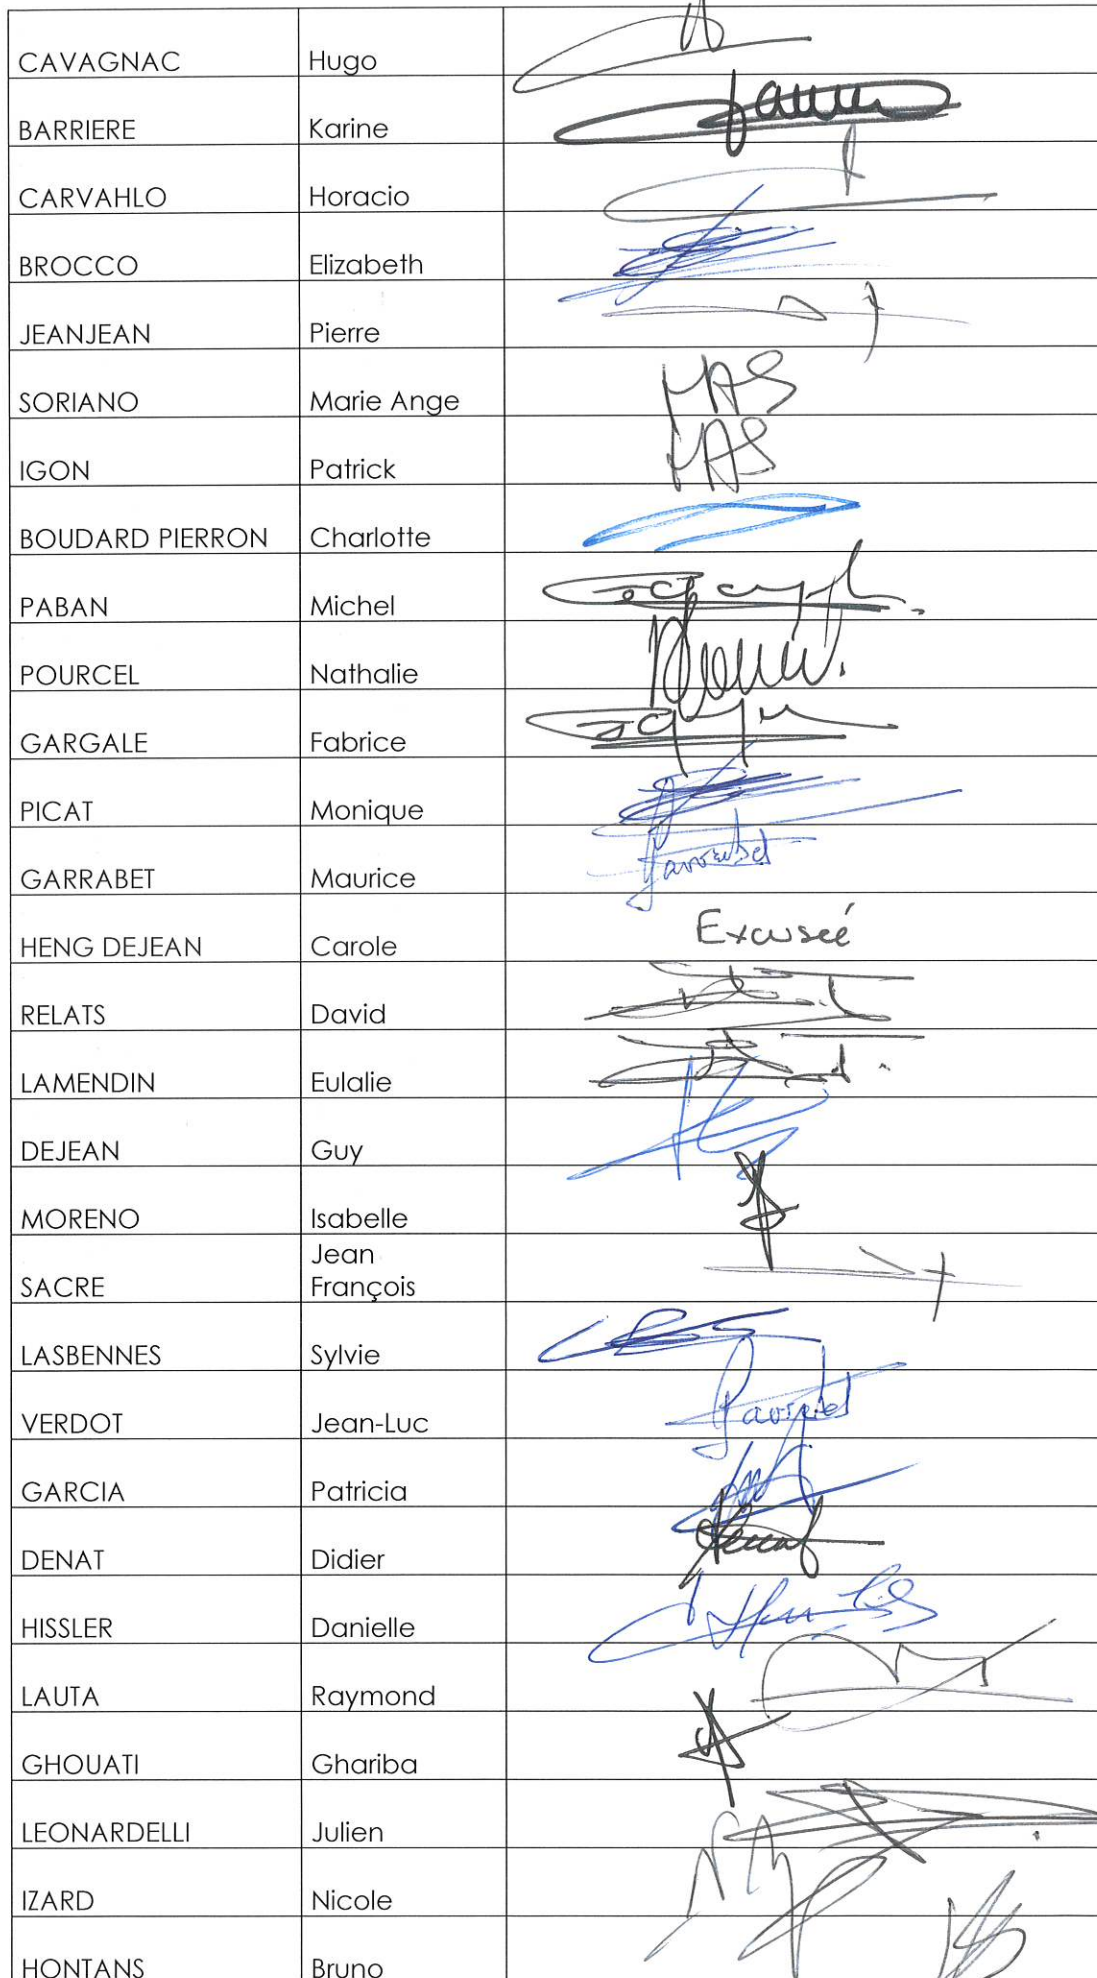 CAVAGNAC Hugo
BARRIERE Karine
CARVAHLO Horacio
BROCCO Elizabeth
JEANJEAN Pierre
SORIANO Marie Ange MAS
IGON Patrick MAS
BOUDARD PIERRON Charlotte
PABAN Michel
POURCEL Nathalie
GARGALE Fabrice
PICAT Monique
GARRABET Maurice Garrabet
HENG DEJEAN Carole Excusée
RELATS David
LAMENDIN Eulalie
DEJEAN Guy
MORENO Isabelle
SACRE Jean
François
LASBENNES Sylvie
VERDOT Jean-Luc Garrabet
GARCIA Patricia
DENAT Didier
HISSLER Danielle
LAUTA Raymond
GHOUATI Ghariba
LEONARDELLI Julien
IZARD Nicole
HONTANS Bruno